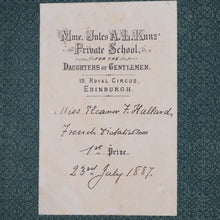 Mme. Jules A. L. Kunz'
Private School,
FOR THE
DAUGHTERS OF GENTLEMEN.
19, ROYAL CIRCUS,
EDINBURGH
Miss Eleanor F. Halland,
French Dictation
1st Prize.
23rd July 1887.